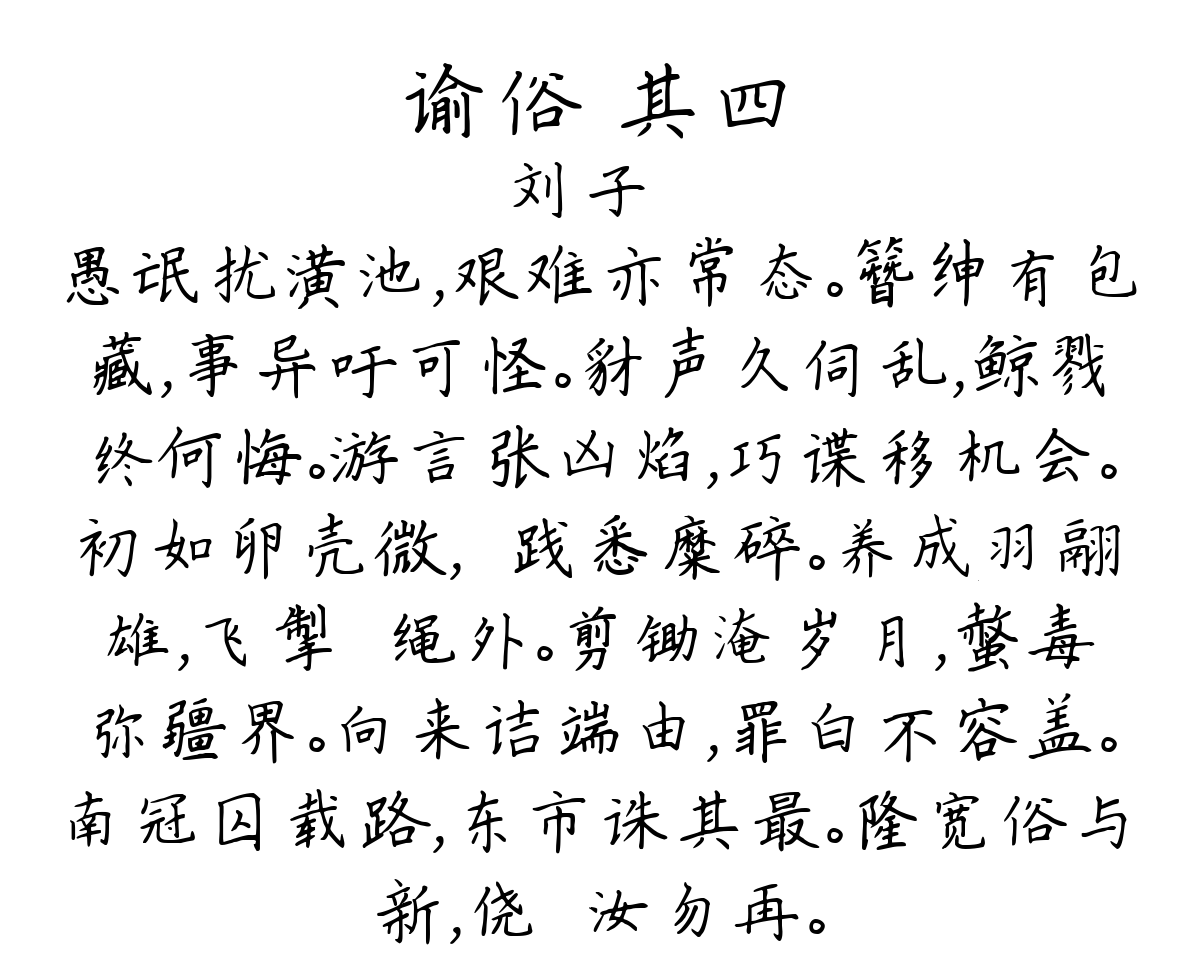 谕俗 其四
刘子
愚氓扰潢池,艰难亦常态。簪绅有包
藏,事异吁可怪。豺声久伺乱,鲸戮
终何悔。游言张凶焰,巧谍移机会。
初如卵壳微, 践悉糜碎。养成羽翮
雄,飞掣 绳外。剪锄淹岁月,螫毒
弥疆界。向来诘端由,罪白不容盖。
南冠囚载路,东市诛其最。隆宽俗与
新,侥 汝勿再。